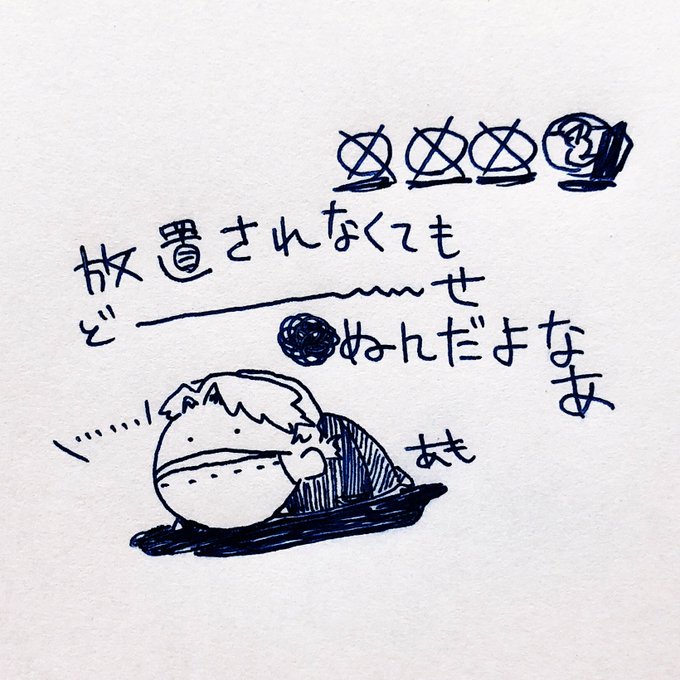 放置されなくても
ど────せ
●ぬんだよなあ
あも